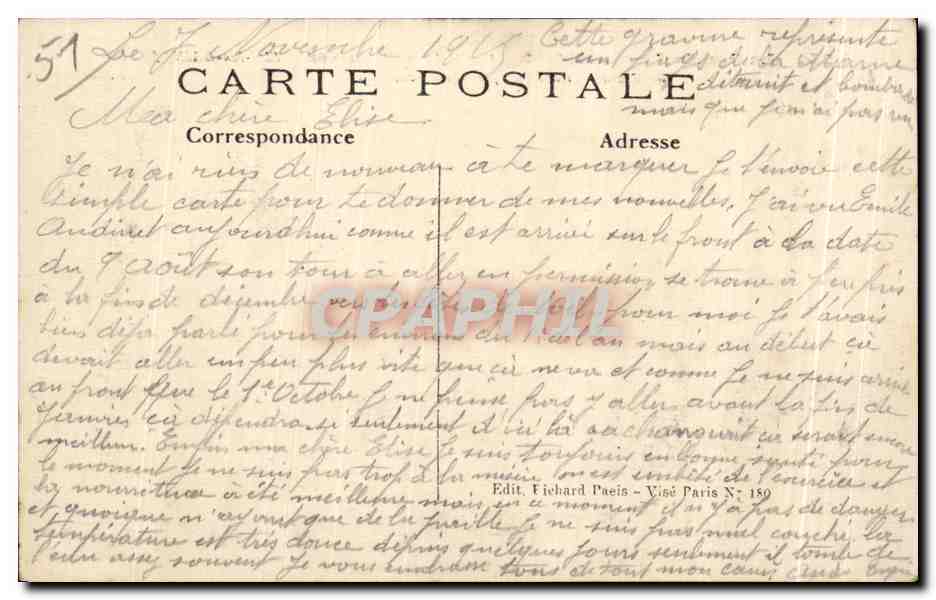 51
Le 7 Novembre 1915
Cette gravure représente
un pays de la Marne
détruit et bombardé
mais que je n'ai pas vu
CARTE POSTALE
Ma chère Elise
Correspondance
Adresse
Je n'ai rien de nouveau à te marquer je t'envoie cette
simple carte pour te donner de mes nouvelles. J'ai vu Emile
aujourdhui comme il est arrivé sur le front à la date
du 9 août son tour à aller en permission se trouve à peu près
à la fin de décembre pour moi je t'avais
bien déja parlé pour du mais au début ça
devait aller un peu plus vite que ça ne va et comme je ne suis arrivé
au front que le 1er Octobre je ne pense pas y aller avant la fin de
Janvier ça dépendra si seulement d'ici là ça changerait ce serait encore
meilleur. Enfin ma chère Elise je suis toujours en bonne santé pour
le moment je ne suis pas trop à la misère on est embêté de l'exercice et
la nourriture a été meilleure mais en ce moment il n'y a pas de danger
Edit. Richard Paris - Visé Paris N° 180
et quoique n'ayant que de la paille je ne suis pas mal couché, la
température est très douce depuis quelques jours seulement il tombe de
l'eau assez souvent Je vous embrasse tous de tout mon coeur
CPAPHIL